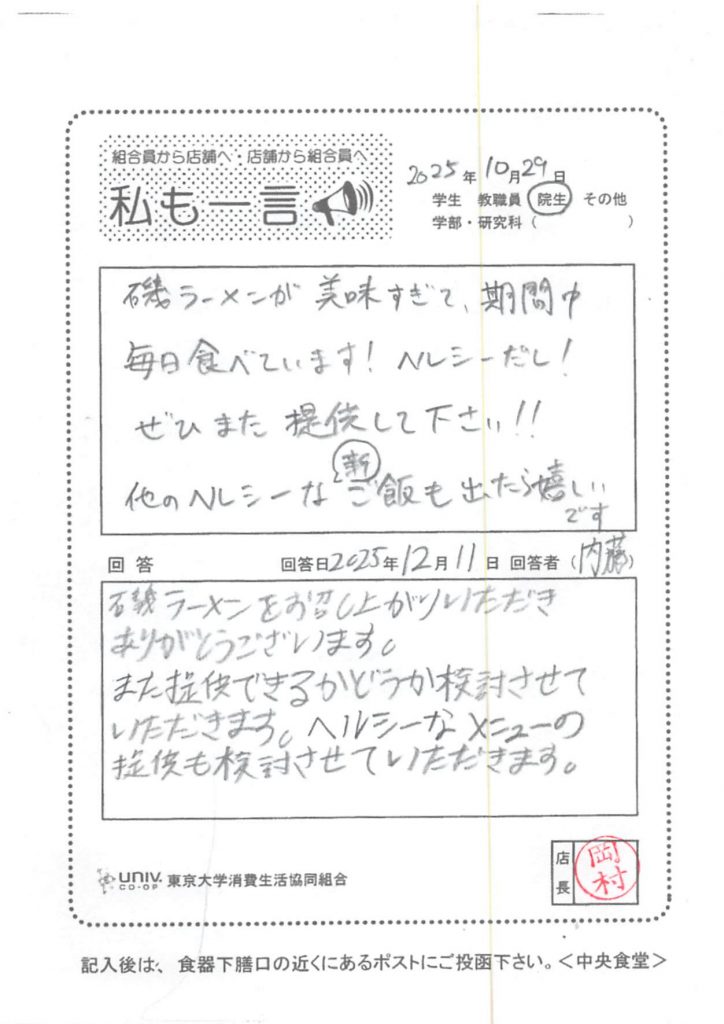 組合員から店舗へ・店舗から組合員へ
私も一言
2025年10月29日
学生 教職員 院生 その他
学部・研究科( )
磯ラーメンが美味すぎて、期間中
毎日食べています! ヘルシーだし!
ぜひまた提供して下さい!!
新
他のヘルシーなご飯も出たら嬉しい
です
回答 回答日2025年12月11日 回答者(内藤)
磯ラーメンをお召し上がりいただき
ありがとうございます。
また提供できるかどうか検討させて
いただきます。ヘルシーなメニューの
提供も検討させていただきます。
UNIV. CO-OP 東京大学消費生活協同組合
店長 岡村
記入後は、食器下膳口の近くにあるポストにご投函下さい。<中央食堂>